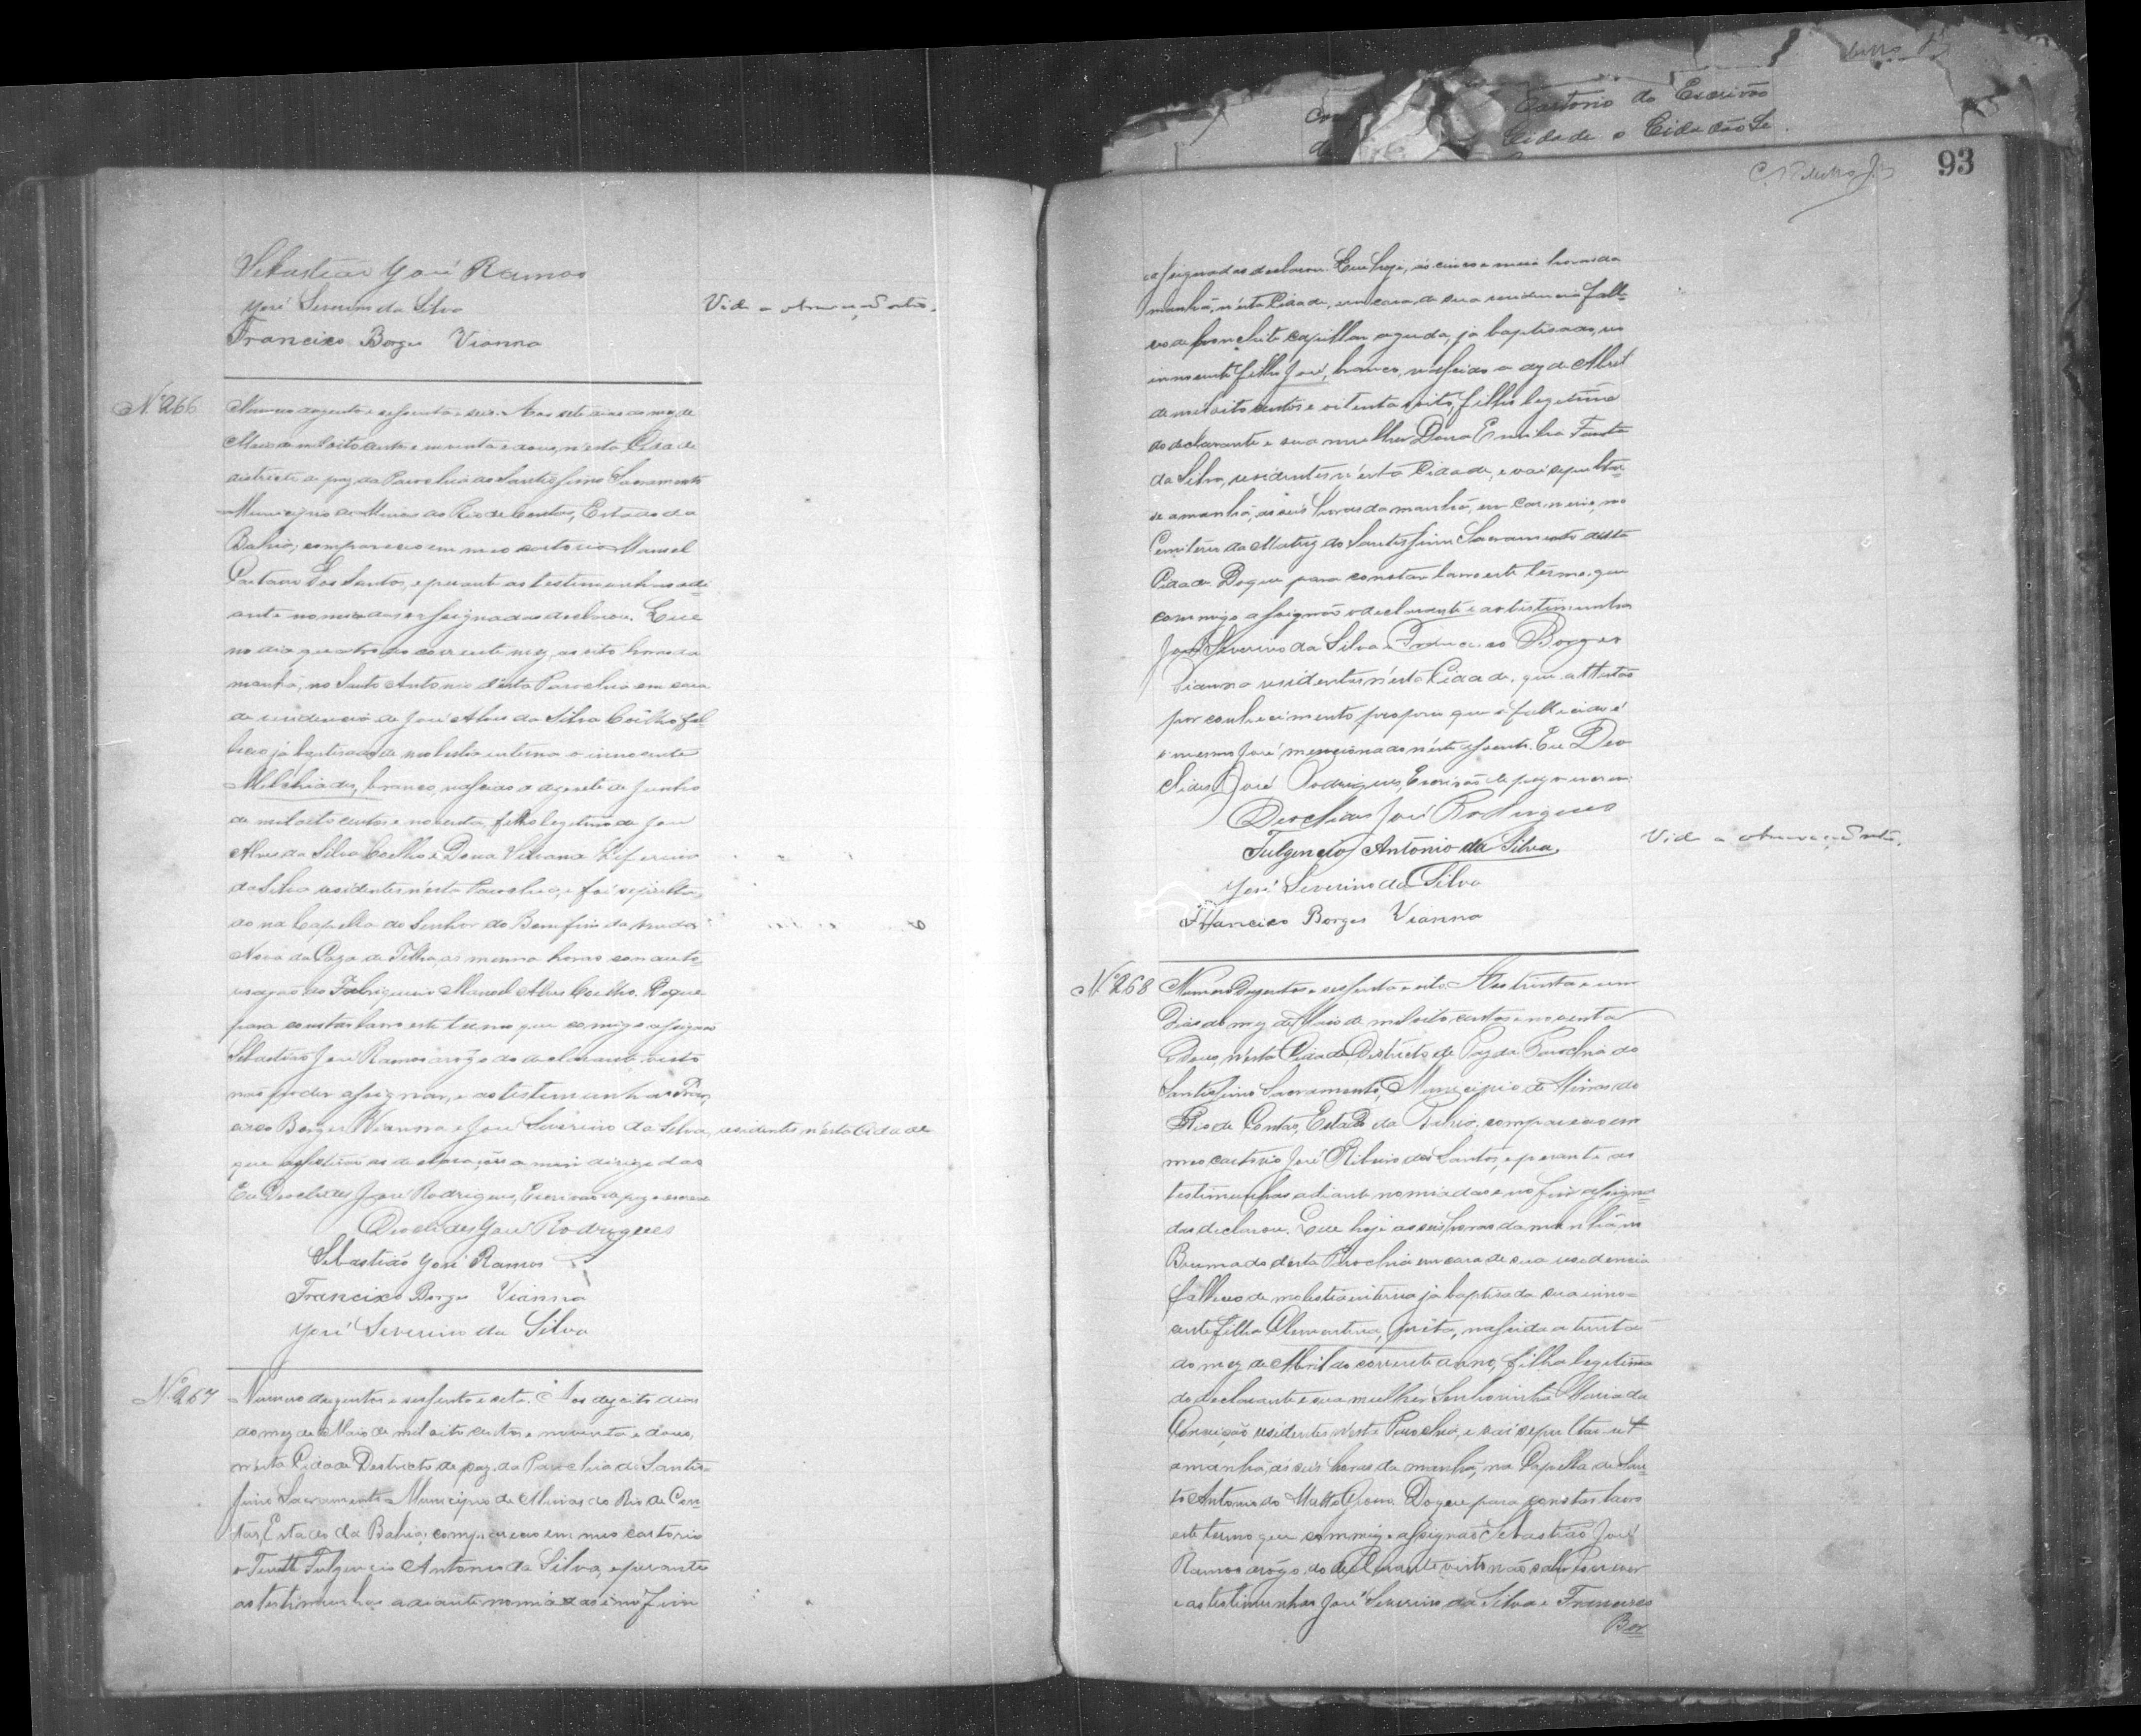 Cartorio do Escrivão
Cidade o Cidadão Te
93
Sebastião José Ramos
José Severino da Silva
Vide a observação retro.
Francisco Borges Vianna
Nº 266
Numero dusentos e sessenta e seis. Aos sete dias do mez de
Maio de mil oito centos e noventa e dous, n'esta Cidade
districto de paz da Parochia do Santissimo Sacramento
Municipio de Minas do Rio de Contas, Estado da
Bahia, compareceo em meo cartorio Manoel
Caetano dos Santos, e perante as testemunhas adi
ante nomeadas e assignadas declarou. Que
no dia quatro do corrente mez, as oito horas da
manhã, no Santo Antonio d'esta Parochia em casa
de residencia de José Alves da Silva Coêlho fal-
leceo já baptisado de molestia interna o innocente
Melchiades, branco, nascido a dezesete de Junho
de mil oito centos e noventa, filho legitimo de José
Alves da Silva Coelho e Dona
da Silva residentes n'esta Parochia, e foi sepulta-
do na Capella do Senhor do Bomfim da
Nova da Casa de Telha, as mesmas horas com auto-
risação do Fabriqueiro Manoel Alves Coelho. Do que
para constar lavro este termo que comigo assignão
Sebastião José Ramos arôgo do declarante, visto
não poder assignar, e as testemunhas Fran-
cisco Borges Vianna e José Severino da Silva, residentes n'esta Cidade
que as declarações a mim dirigidas
Eu Deoclides José Rodrigues, Escrivão de paz o escrevi
Deoclides José Rodrigues
Sebastião José Ramos
Francisco Borges Vianna
José Severino da Silva
Nº 267
Numero dusentos e sessenta e sete. Aos dezoito dias
do mez de Maio de mil oito centos e noventa e dous,
n'esta Cidade Districto de paz da Parochia do Santis-
simo Sacramento Municipio de Minas do Rio de Con-
tas, Estado da Bahia, compareceo em meo cartorio
o Tenente Fulgencio Antonio da Silva, e perante
as testimunhas adiante nomiadas e no fim
assignadas declarou. Que hoje, ás cinco e meia horas da
manhã, n'esta Cidade, em casa de sua residencia falle-
ceo de bronchite capillar aguda, já baptisado, seo
innocente filho José, branco, nascido a dez de Abril
de mil oito centos e oitenta e oito, filho legitimo
do declarante e sua mulher Dona Emilia Fausta
da Silva, residentes n'esta Cidade, e vai sepultar-
se amanhã, ás seis horas da manhã, em carneiro, no
Cemiterio da Matriz do Santissimo Sacramento desta
Cidade. Do que para constar lavro este termo, que
commigo assignão o declarante e as testimunhas
José Severino da Silva e Francisco Borges
Vianna residentes n'esta Cidade, que attestão
por conhecimento proprio que o fallecido é
o mesmo José mencionado n'este assento. Eu Deo
clides José Rodrigues, Escrivão de paz o escrevi.
Deoclides José Rodrigues
Fulgencio Antônio da Silva.
Vide a observação retro.
José Severino da Silva
Francisco Borges Vianna
Nº 268
Numero Dusentos e sessenta e oito. Aos trinta e um
Dias do mez de Maio de mil oito centos e noventa
e Dous, n'esta Cidade, Districto de Paz da Parochia do
Santissimo Sacramento, Municipio de Minas do
Rio de Contas, Estado da Bahia, compareceo em
meo cartorio José Ribeiro dos Santos, e perante as
testimunhas adiante nomiadas e no fim assigna-
das declarou. Que hoje as seis horas da manhã no
Brumado desta Parochia em casa de sua residencia
falleceo de molestia interna já baptisada sua inno-
cente filha Clementina, prêta, nascida a trinta
do mez de Abril do corrente anno, filha legitima
do declarante e sua mulher Senhorinha Maria da
Conceição, residentes nesta Parochia, e vai sepultar-se
amanhã, ás seis horas da manhã, na Capella de San-
to Antonio do Matto Grosso. Do que para constar lavro
este termo que commigo assignão Sebastião José
Ramos arôgo do declarante visto não saber escrever
e as testimunhas José Severino da Silva e Francisco
Bor